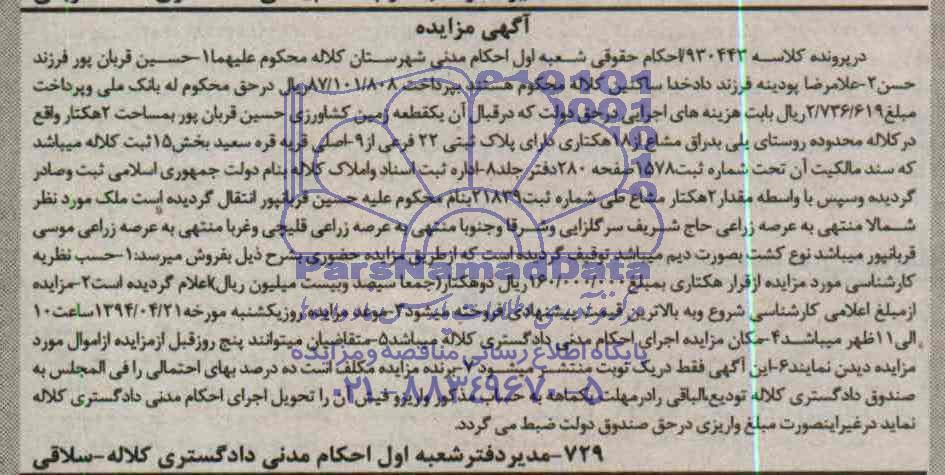 آگهی مزایده
درپرونده کلاسه ۹۳۰۴۴۳/احکام حقوقی شعبه اول احکام مدنی شهرستان کلاله محکوم علیهما۱-حسین قربان پور فرزند
حسن۲-علامرضا پودینه فرزند دادخدا ساکنین کلاله محکوم هستند بپرداخت ۸۷/۱۰۱/۸۰۸ریال درحق محکوم له بانک ملی وپرداخت
مبلغ۲/۷۳۶/۶۱۹ریال بابت هزینه های اجرایی درحق دولت که درقبال آن یکقطعه زمین کشاورزی حسین قربان پور بمساحت ۲هکتار واقع
در کلاله محدوده روستای یلی بدراق مشاع از۱۸هکتاری دارای پلاک ثبتی ۲۲ فرعی از۹-اصلی قریه قره سعید بخش۱۵ثبت کلاله میباشد
که سند مالکیت آن تحت شماره ثبت۱۵۷۸صفحه ۲۸۰دفتر جلد۸-اداره ثبت اسناد واملاک کلاله بنام دولت جمهوری اسلامی ثبت وصادر
گردیده وسپس با واسطه مقدار۲هکتار مشاع طی شماره ثبت۲۱۸۳۹بنام محکوم علیه حسین قربانپور انتقال گردیده است ملک مورد نظر
شمالا منتهی به عرصه زراعی حاج شریف سرگلزایی وشرقا وجنوبا منتهی به عرصه زراعی قلیچی وغربا منتهی به عرصه زراعی موسی
قربانپور میباشد نوع کشت بصورت دیم میباشد توقیف گردیده است که ازطریق مزایده حضوری بشرح ذیل بفروش میرسد:۱-حسب نظریه
کارشناسی مورد مزایده ازقرار هکتاری بمبلغ۱۶۰/۰۰۰/۰۰۰ریال دوهکتار(جمعا سیصد وبیست میلیون ریال)اعلام گردیده است۲-مزایده
ازمبلغ اعلامی کارشناسی شروع وبه بالاترین قیمت پیشنهادی فروخته میشود۳-موعد مزایده روزیکشنبه مورخه۱۳۹۴/۰۴/۲۱ساعت۱۰
الی۱۱ظهر میباشد۴-مکان مزایده اجرای احکام مدنی دادگستری کلاله میباشد۵-متقاضیان میتوانند پنج روزقبل ازمزایده ازاموال مورد
مزایده دیدن نمایند۶-این آگهی فقط دریک نوبت منتشر میشود۷-برنده مزایده مکلف است ده درصد بهای احتمالی را فی المجلس به
صندوق دادگستری کلاله تودیع،الباقی رادرمهلت یکماهه به حساب مذکور واریزو فیش آن را تحویل اجرای احکام مدنی دادگستری کلاله
نماید درغیراینصورت مبلغ واریزی درحق صندوق دولت ضبط می گردد.
۷۲۹-مدیردفترشعبه اول احکام مدنی دادگستری کلاله-سلاقی
ParsNamadData
پایگاه اطلاع رسانی مناقصه ومزایده
۰۲۱-۸۸۳۴۹۶۷۰-۵